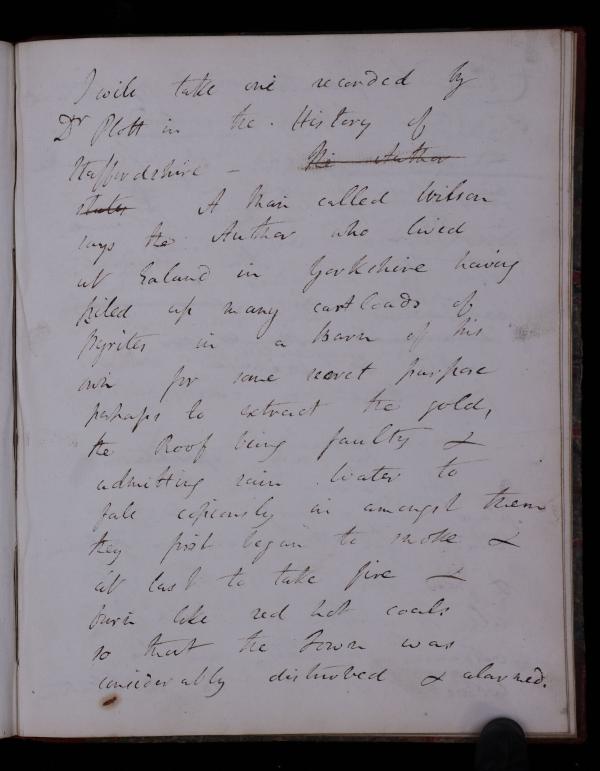 I will take one recorded by
Dr Plott in the History of
Staffordshire - The Author
states A Man called Wilson
says the Author who lived
at Ealand in Yorkshire having
piled up many cartloads of
Pyrites in a Barn of his
own for some secret purpose
perhaps to extract the gold,
the Roof being faulty &
admitting rain water to
fall copiously in amongst them
they first began to smoke &
at last to take fire &
burn like red hot coals
so that the Town was
considerably disturbed & alarmed.